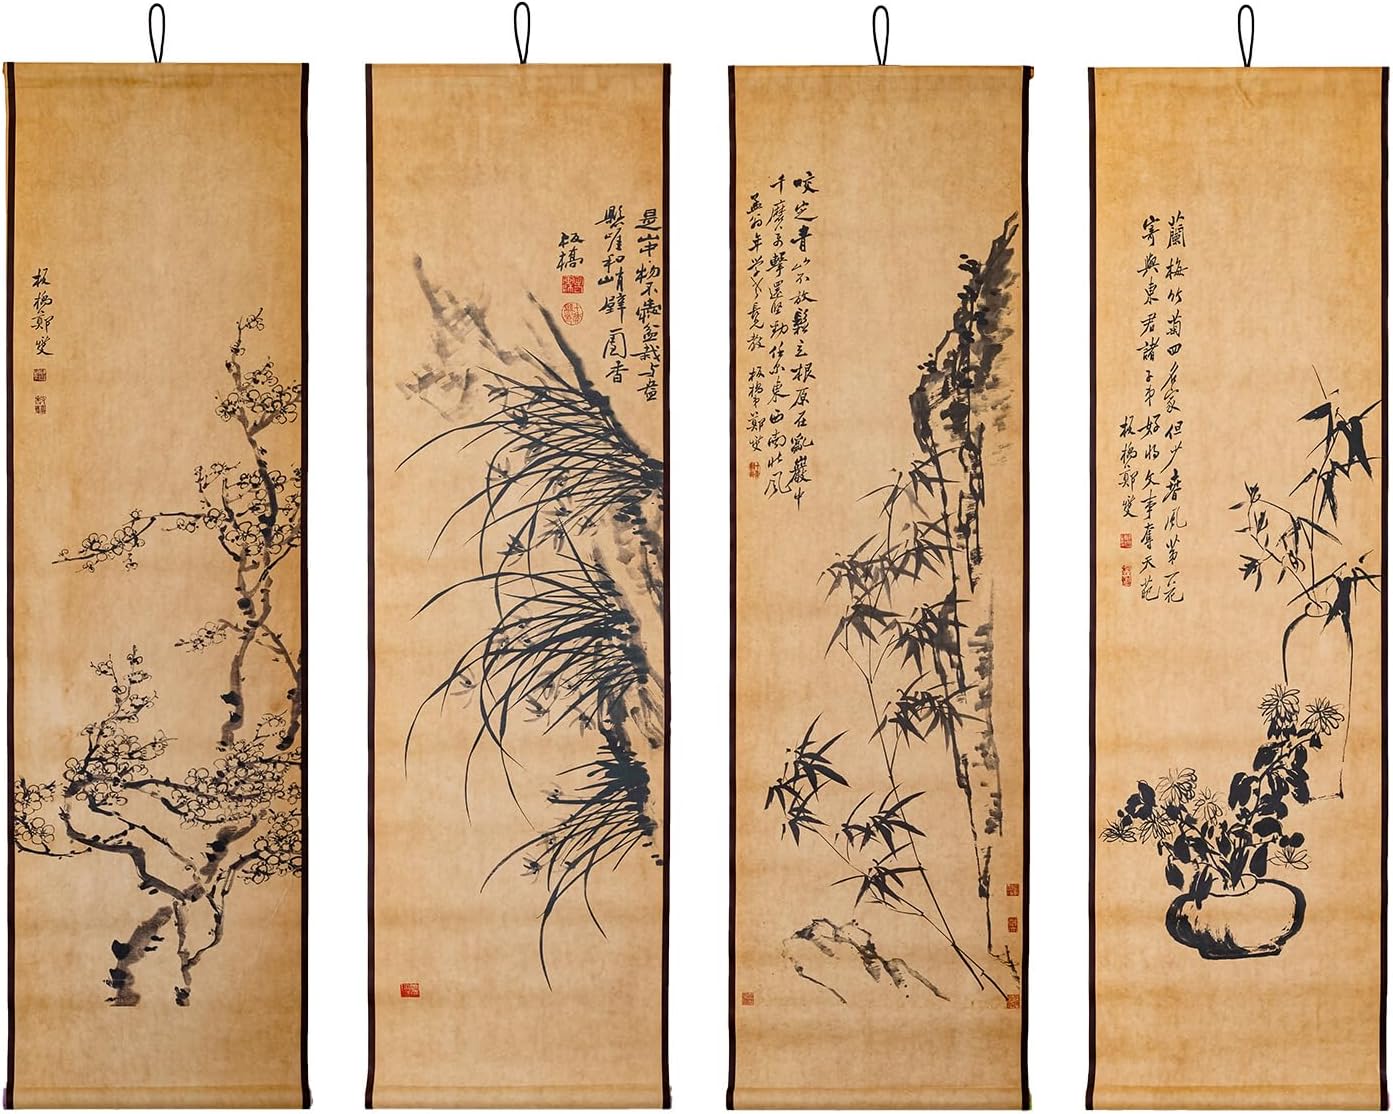 板橋鄭燮
是山中物不盆栽与盎
懸崖和峭壁香
板橋
咬定青山不放鬆立根原在亂巖中
千磨万擊還堅勁任尔東西南北風
孟翁年學兄教 板橋弟鄭燮
蘭梅竹菊四名家但少春風第一花
寄與東君諸子弟好將文事奪天葩
板橋鄭燮